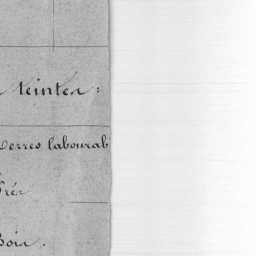 teintes :
Terres labourab
Prés
Bois.